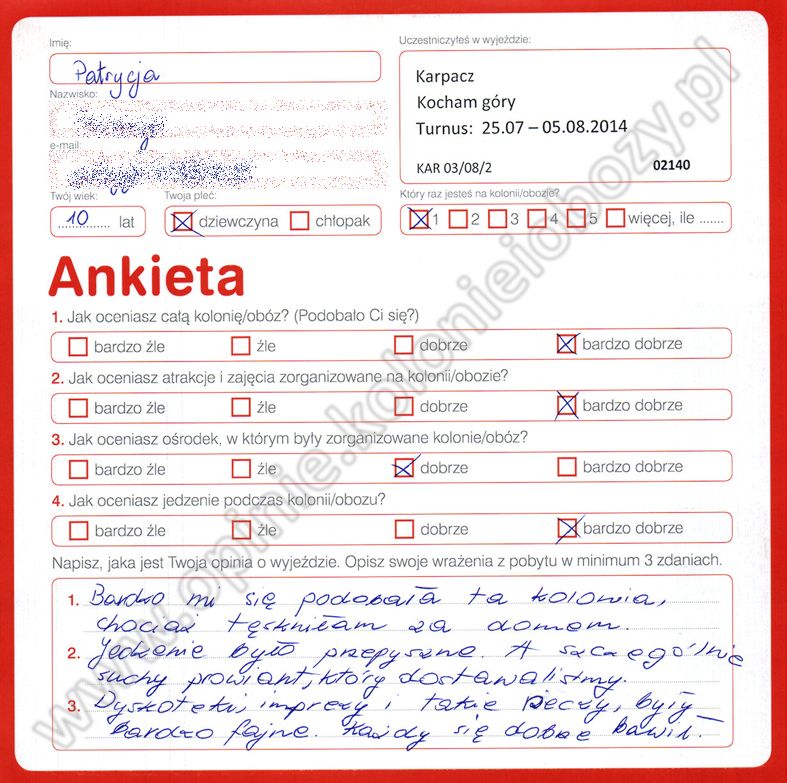 Imię:
Patrycja
Nazwisko:
e-mail:
Twój wiek:
10 lat
Twoja płeć:
dziewczyna chłopak
Uczestniczyłeś w wyjeździe:
Karpacz
Kocham góry
Turnus: 25.07 – 05.08.2014
KAR 03/08/2 02140
Który raz jesteś na kolonii/obozie?
1 2 3 4 5 więcej, ile .......
Ankieta
1. Jak oceniasz całą kolonię/obóz? (Podobało Ci się?)
bardzo źle źle dobrze bardzo dobrze
2. Jak oceniasz atrakcje i zajęcia zorganizowane na kolonii/obozie?
bardzo źle źle dobrze bardzo dobrze
3. Jak oceniasz ośrodek, w którym były zorganizowane kolonie/obóz?
bardzo źle źle dobrze bardzo dobrze
4. Jak oceniasz jedzenie podczas kolonii/obozu?
bardzo źle źle dobrze bardzo dobrze
Napisz, jaka jest Twoja opinia o wyjeździe. Opisz swoje wrażenia z pobytu w minimum 3 zdaniach.
1. Bardzo mi się podobała ta kolonia,
chociaż tęskniłam za domem.
2. Jedzenie było przepyszne. A szczególnie
suchy prowiant, który dostawaliśmy.
3. Dyskoteki, imprezy i takie rzeczy, były
bardzo fajne. Każdy się dobrze bawił.
www.opinie.kolonieiobozy.pl